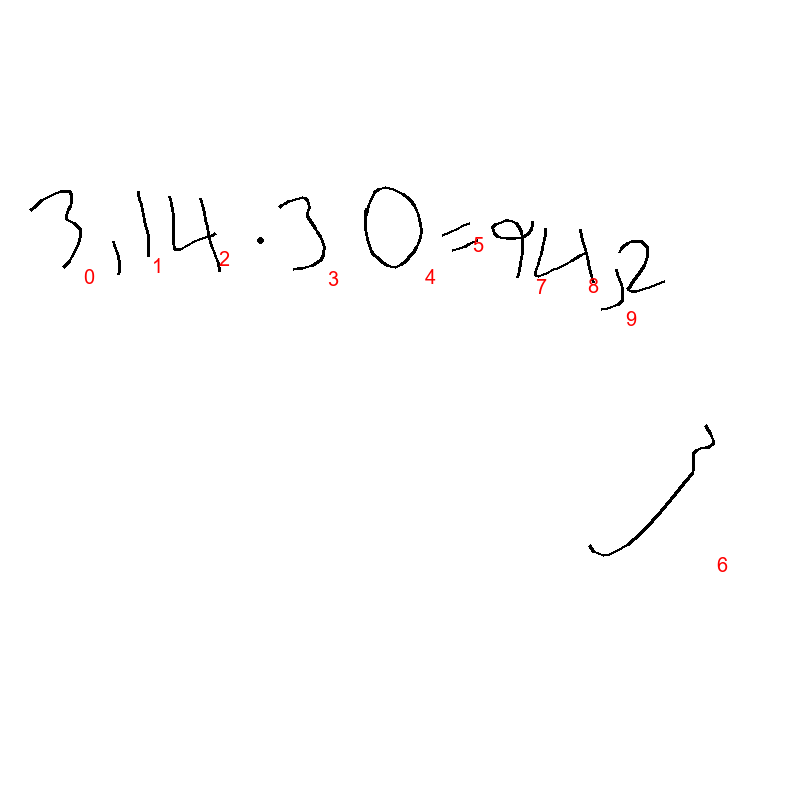 3,14·30=94,2
0 1 2 3 4 5 7 8 9
6